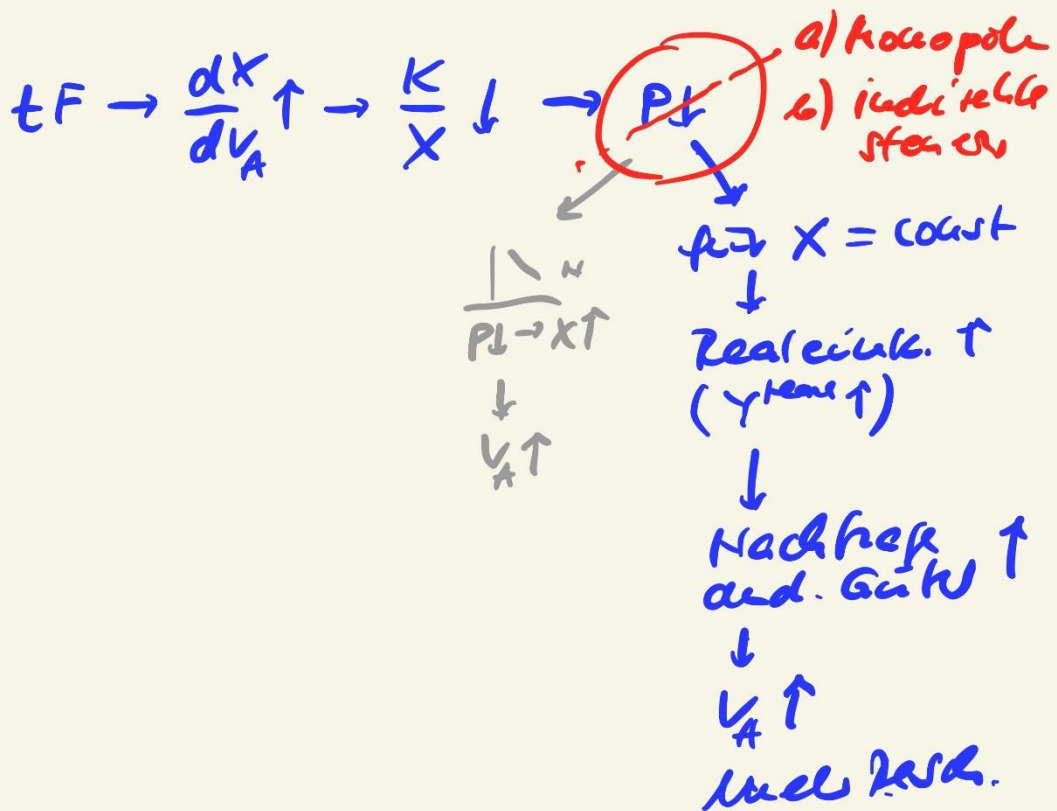 tF → dX/dV_A ↑ → K/X ↓ → P↓
a) Monopole
b) indirekte
Steuern
für X = const
N
P↓ → X↑
↓
V_A ↑
↓
Realeink. ↑
(Y^real ↑)
↓
Nachfrage
and. Güter ↑
↓
V_A ↑
mehr Besch.